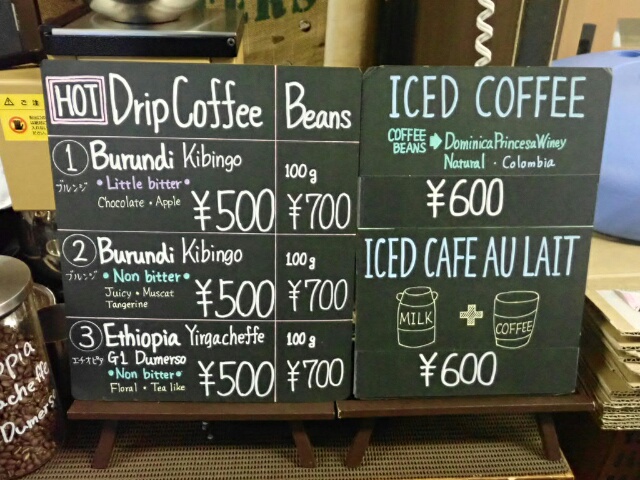 HOT Drip Coffee
Beans
① Burundi Kibingo
ブルンジ
• Little bitter •
Chocolate • Apple
¥500
100g
¥700
② Burundi Kibingo
ブルンジ
• Non bitter •
Juicy • Muscat
Tangerine
¥500
100g
¥700
③ Ethiopia Yirgacheffe
エチオピア
G1 Dumerso
• Non bitter •
Floral • Tea like
¥500
100g
¥700
ICED COFFEE
COFFEE BEANS ➡ Dominica Princesa Winey
Natural • Colombia
¥600
ICED CAFE AU LAIT
MILK + COFFEE
¥600
ご注
opia
acheffe
Dumerso